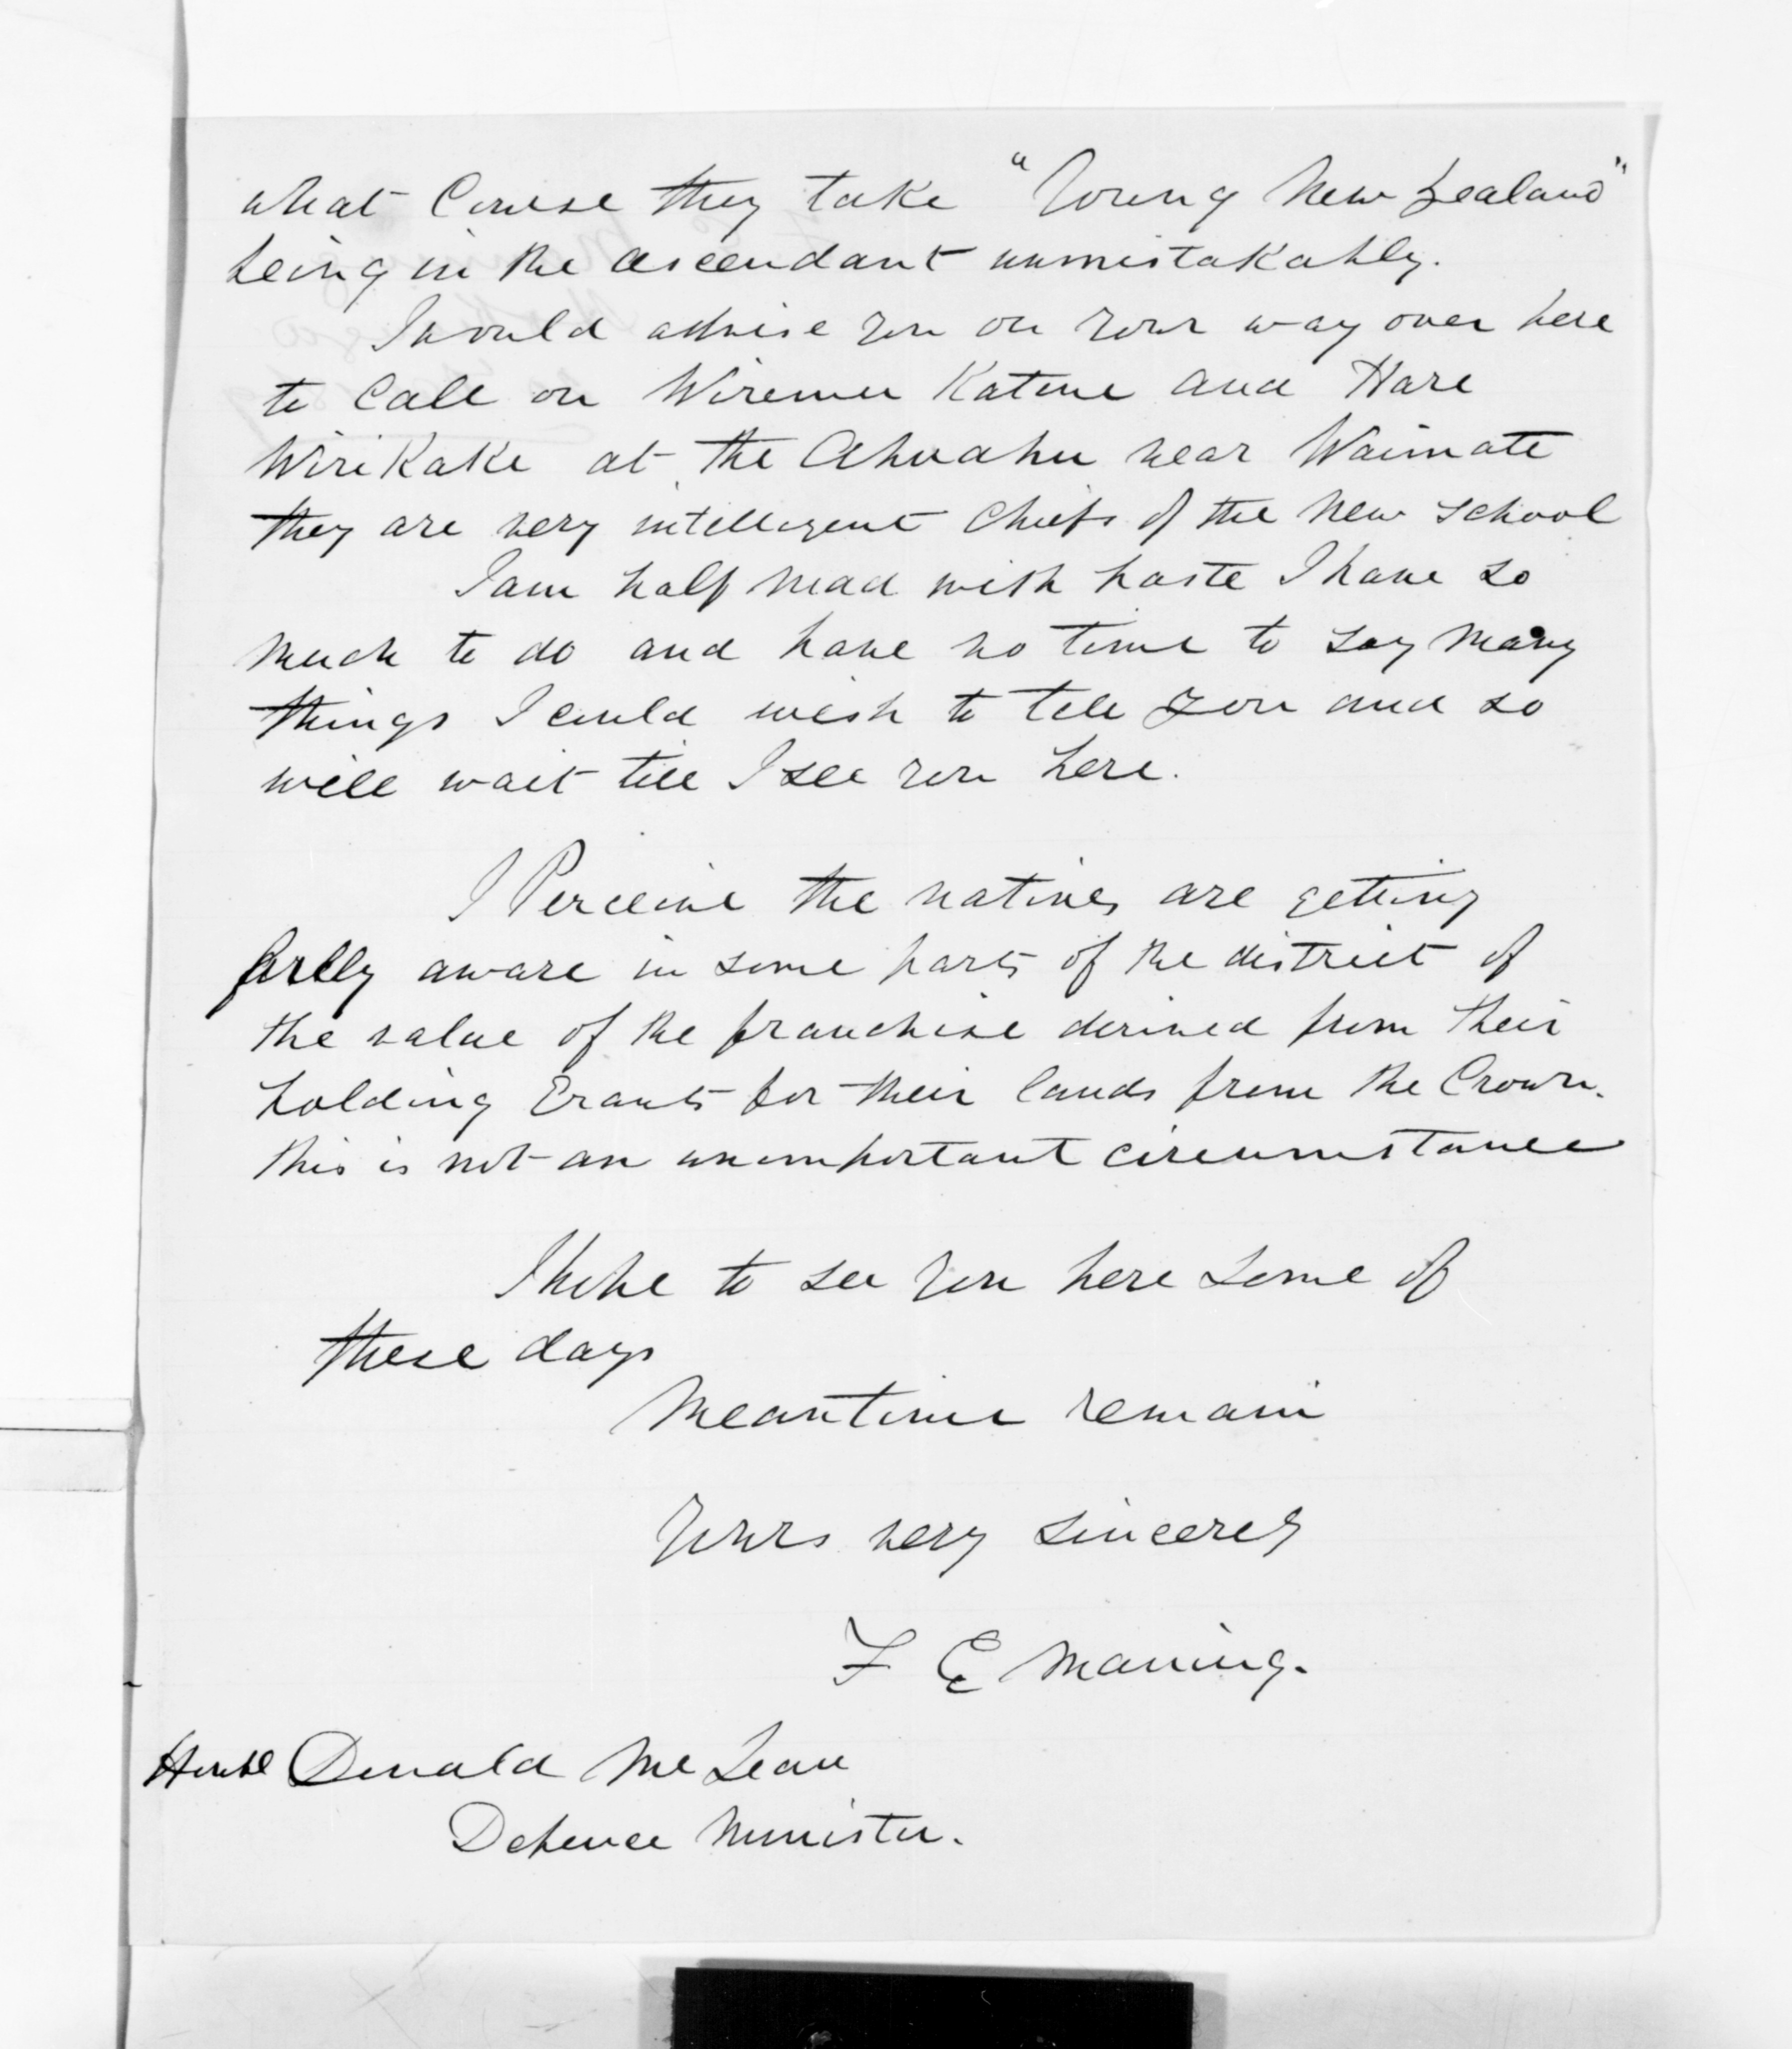 what Course they take "Young New Zealand"
being in the ascendant unmistakably.
I would advise you on your way over here
to Call on Wiremu Katene and Hare
Wirikake at the Ahuahu near Waimate
they are very intelligent Chiefs of the New School
I am half mad with haste I have so
much to do and have no time to say many
things I could wish to tell you and so
will wait till I see you here.
I Perceive the natives are getting
fully aware in some parts of the district of
the value of the franchise derived from their
holding Grants for their lands from the Crown.
this is not an unimportant circumstance
I hope to see you here some of
these days
Meantime remain
Yours very sincerely
F E Maning.
Honble Donald McLean
Defence Minister.